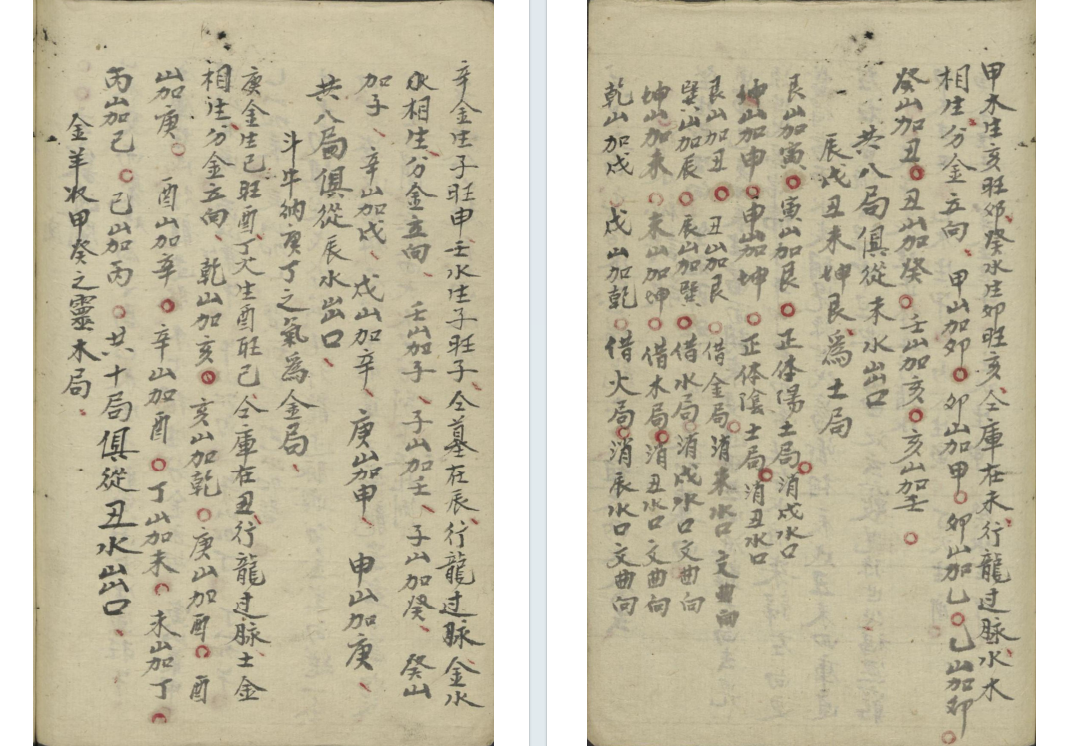 甲木生亥旺卯癸水生卯旺亥仝庫在未行龍过脉水木
相生分金立向、甲山加卯○卯山加甲○卯山加乙○乙山加卯○
癸山加丑○丑山加癸○壬山加亥○亥山加壬○
共八局俱從未水出口
辰戌丑未坤艮為土局
艮山加寅○寅山加艮○正体陽土局消戌水口
坤山加申○申山加坤○正体陰土局消丑水口
艮山加丑○丑山加艮○借金局消未水口文曲向
巽山加辰○辰山加巽○借水局消戌水口文曲向
坤山加未○未山加坤○借木局消丑水口文曲向
乾山加戌○戌山加乾○借火局消辰水口文曲向
辛金生子旺申壬水生子旺子仝墓在辰行龍过脉金水
水相生分金立向、壬山加子、子山加壬、子山加癸、癸山
加子、辛山加戌、戌山加辛、庚山加申、申山加庚、
共八局俱從辰水出口、
斗牛納庚丁之氣為金局、
庚金生巳旺酉丁火生酉旺巳仝庫在丑行龍过脉土金
相生分金立向、乾山加亥○亥山加乾○庚山加酉○酉
山加庚○酉山加辛○辛山加酉○丁山加未○未山加丁○
丙山加巳○巳山加丙○共十局俱從丑水出口、
金羊收甲癸之靈木局、